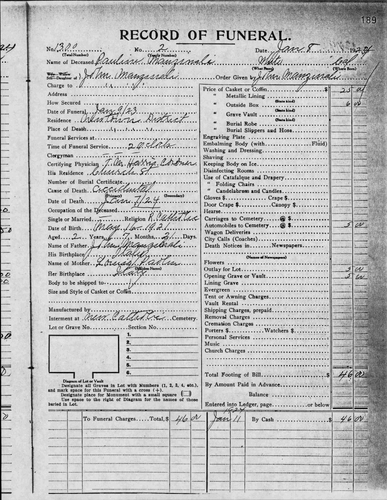 189
RECORD OF FUNERAL.
No. 1300 No. 2 Date Jan 8 1924
(Total Number) (Yearly Number)
Name of Deceased Pauline Manginelli White
(What Race)
Charge to John Manginelli Order Given by John Manginelli
Address
How Secured
Date of Funeral Jan 9/23
Residence District
Place of Death
Funeral Services at
Time of Funeral Service 2 o'clock
Clergyman
Certifying Physician Coroner
His Residence Church St
Number of Burial Certificate
Cause of Death Accidental
Date of Death Jan 7/24
Occupation of the Deceased
Single or Married Religion R. Catholic
Date of Birth May 16, 1921
Aged 2 Years 7 Months 21 Days
Name of Father John Manginelli
His Birthplace Italy
Name of Mother Louise
Her Birthplace Italy
Body to be shipped to
Size and Style of Casket or Coffin
Manufactured by
Interment at New Catholic Cemetery.
Lot or Grave No. Section No.
1.
2.
3.
4.
5.
6.
Diagram of Lot or Vault
Designate all Graves in Lot with Numbers (1, 2, 3, 4, etc.) and mark space for this Funeral with a cross (+).
Designate place for Monument with a small square □
Use space to right of Diagram for the names of those buried in Lot.
To Funeral Charges Total, $ 46 00
Price of Casket or Coffin $ 35 00
" Metallic Lining
" Outside Box 6 00
" Grave Vault
" Burial Robe
" Burial Slippers and Hose
Engraving Plate
Embalming Body (with Fluid)
Washing and Dressing
Shaving
Keeping Body on Ice
Disinfecting Rooms
Use of Catafalque and Drapery
" Folding Chairs
" Candelabrum and Candles
Gloves $ Crape $
Door Crape $ Canopy $
Hearse
Carriages to Cemetery @ $
Automobiles to Cemetery @ $
Wagon Deliveries
City Calls (Coaches)
Death Notices in Newspapers
Flowers
Outlay for Lot
Opening Grave or Vault
Lining Grave
Evergreen
Tent or Awning Charges
Vault Rental
Shipping Charges, prepaid
Removal Charges
Cremation Charges
Porters $ Watchers $
Personal Services
Music
Church Charges
Total Footing of Bill $ 46 00
By Amount Paid in Advance
Balance
Entered into Ledger, page or below
Jan 11 By Cash $ 46 00